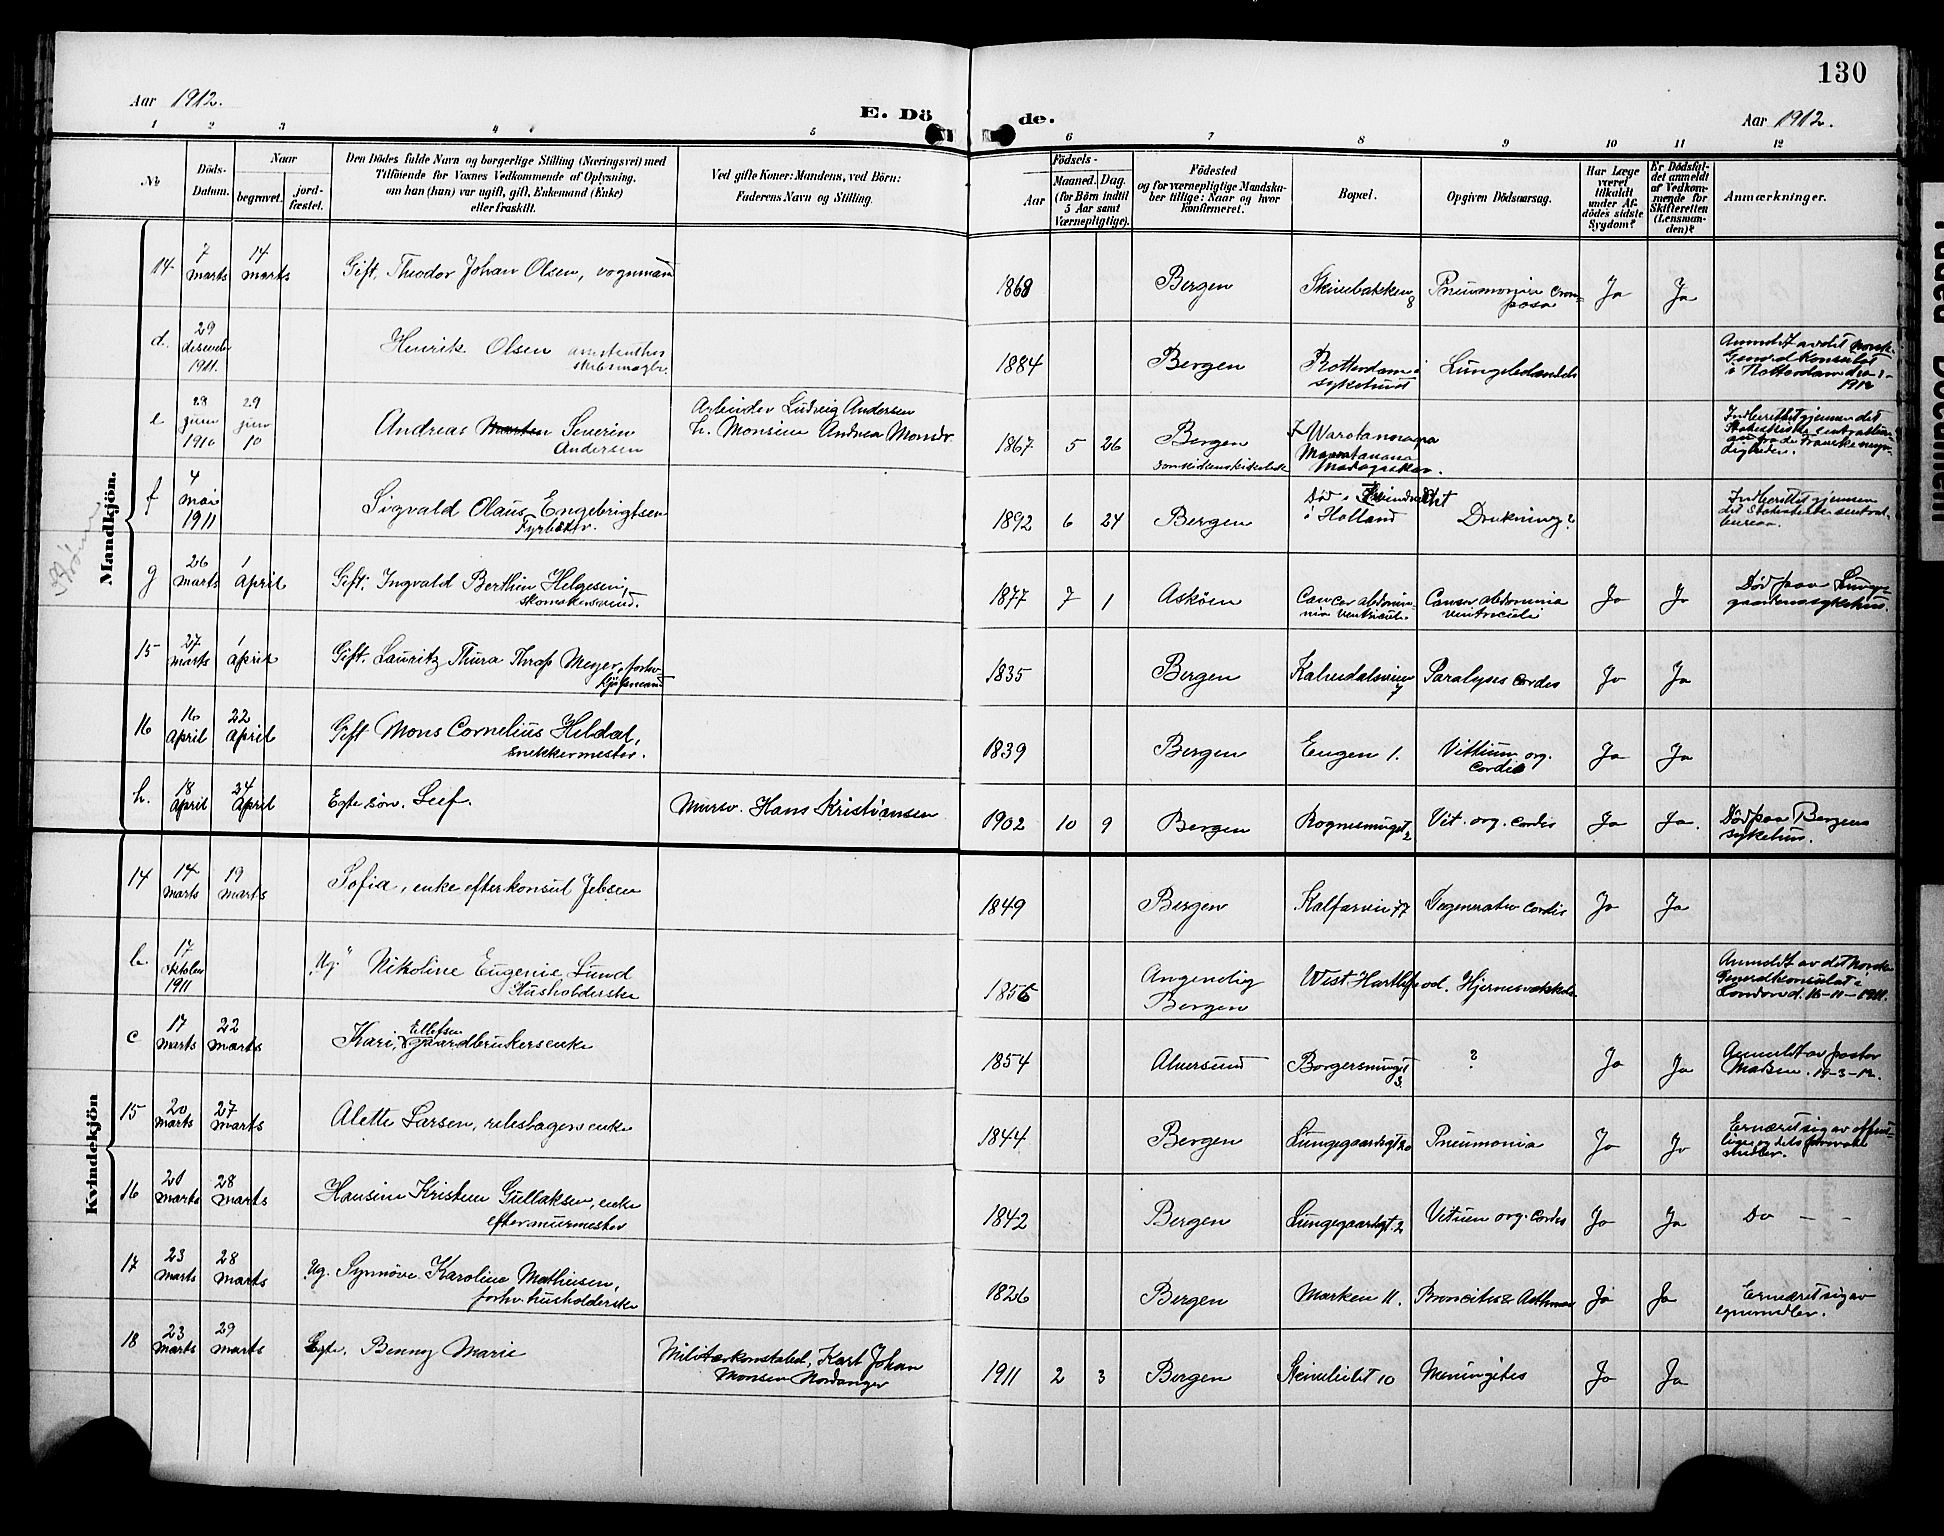 130
Aar 1912.
E. Döde.
Aar 1912.
1 2 3 4 5 6 7 8 9 10 11 12
No
Döds-Datum.
Naar
begravet.
jord-fæstet.
Den Dödes fulde Navn og borgerlige Stilling (Næringsvei) med
Tilföiende for Voxnes Vedkommende af Oplysning,
om han (hun) var ugift, gift, Enkemand (Enke)
eller fraskilt.
Ved gifte Koner: Mandens, ved Börn:
Faderens Navn og Stilling.
Födsels-
Aar
Maaned. Dag.
(for Börn indtil
5 Aar samt
Værnepligtige).
Födested
og for værnepligtige Mandska-
ber tillige: Naar og hvor
konfirmeret.
Bopæl.
Opgiven Dödsaarsag.
Har Læge
været
tilkaldt
under Af-
dödes sidste
Sygdom?
Er Dödsfal-
det anmeldt
af Vedkom-
mende for
Skifteretten
(Lensman-
den)?
Anmærkninger.
Mandkjön.
14 7 marts 14 marts Gift. Theodor Johan Olsen, vognmand 1868 Bergen Skivebakken 8 Pneumonia croupøsa Ja Ja
d. 29 desember 1911. Henrik Olsen 1884 Bergen Rotterdam sykehuset Anmeldt av det norske General Konsulat i Rotterdam 1912
e 28 juni 1910 29 juni 10 Andreas Marten Severin Andersen Arbeider Ludvig Andersen h. Monsine Andrea Monsdr. 1867 5 26 Bergen Madagaskar. Indberettet gjennem det Statistiske Sentralbureau fra de Franske myndigheder.
f 4 mai 1911 Sigvald Olaus Engebrigtsen Fyrbøter. 1892 6 24 Bergen Død i i Holland Drukning? Indberettet gjennem det Statistiske sentralbureau.
g 26 marts 1 April Gift. Ingvald Berthin Helgesen, skomakersvend. 1877 7 1 Askøen Cancer abdominia ventriculi Cancer abdominia ventriculi Ja Ja Død paa Lungegaardens sykehus.
15 27 marts 1 April Gift. Lauritz Thura Thrap Meyer, forhv. kjøbmand 1835 Bergen Kalvedalsveien 7 Paralysis cordis Ja Ja
16 16 April 22 April Gift Mons Cornelius Hildal, snekkermester. 1839 Bergen Engen 1. Vittium org. cordis Ja Ja
h. 18 April 24 April Egte søn. Leif. Mursv. Hans Kristiansen 1902 10 9 Bergen Rognesmuget 2 Vit. org. cordis Ja Ja. Død paa Bergens sykehus.
Kvindekjön
14 14 marts 19 marts Sofia, enke efter konsul Jebsen 1849 Bergen Kalfarvei 77 Degeneratio cordis Ja Ja
b. 17 oktober 1911 Ug. Nikoline Eugenie Lund Husholderske 1856 Angivelig Bergen West Hartlepool. Anmeldt av det Norske Generalkonsulat i London d. 16-11-1911.
c 17 marts 22 marts Kari Ellefsen, gaardbrukersenke 1854 Alversund Borgersmuget 3 ? Ja Ja Anmeldt av pastor Madsen. 19-3-12.
15 20 marts 27 marts Alette Larsen, enke 1844 Bergen Lungegaardsgt 20 Pneumonia Ja Ja Ernæret sig av offentlige og dels private midler.
16 20 marts 28 marts Hansine Kristine Gullaksen, enke efter murmester 1842 Bergen Lungegaardsgt. 2 Vitium org. cordis Ja Ja Do — -
17 23 marts 28 marts Ug. Synnøve Karoline Mathiesen, forhv. husholderske 1826 Bergen Marken 11. Broncitis & Asthma Ja Ja Ernæret sig av egne midler.
18 23 marts 29 marts Egte. Benny Marie Militærkonstabel, Karl Johan Monsen Nordanger 1911 2 3 Bergen 10 Meningitis Ja Ja